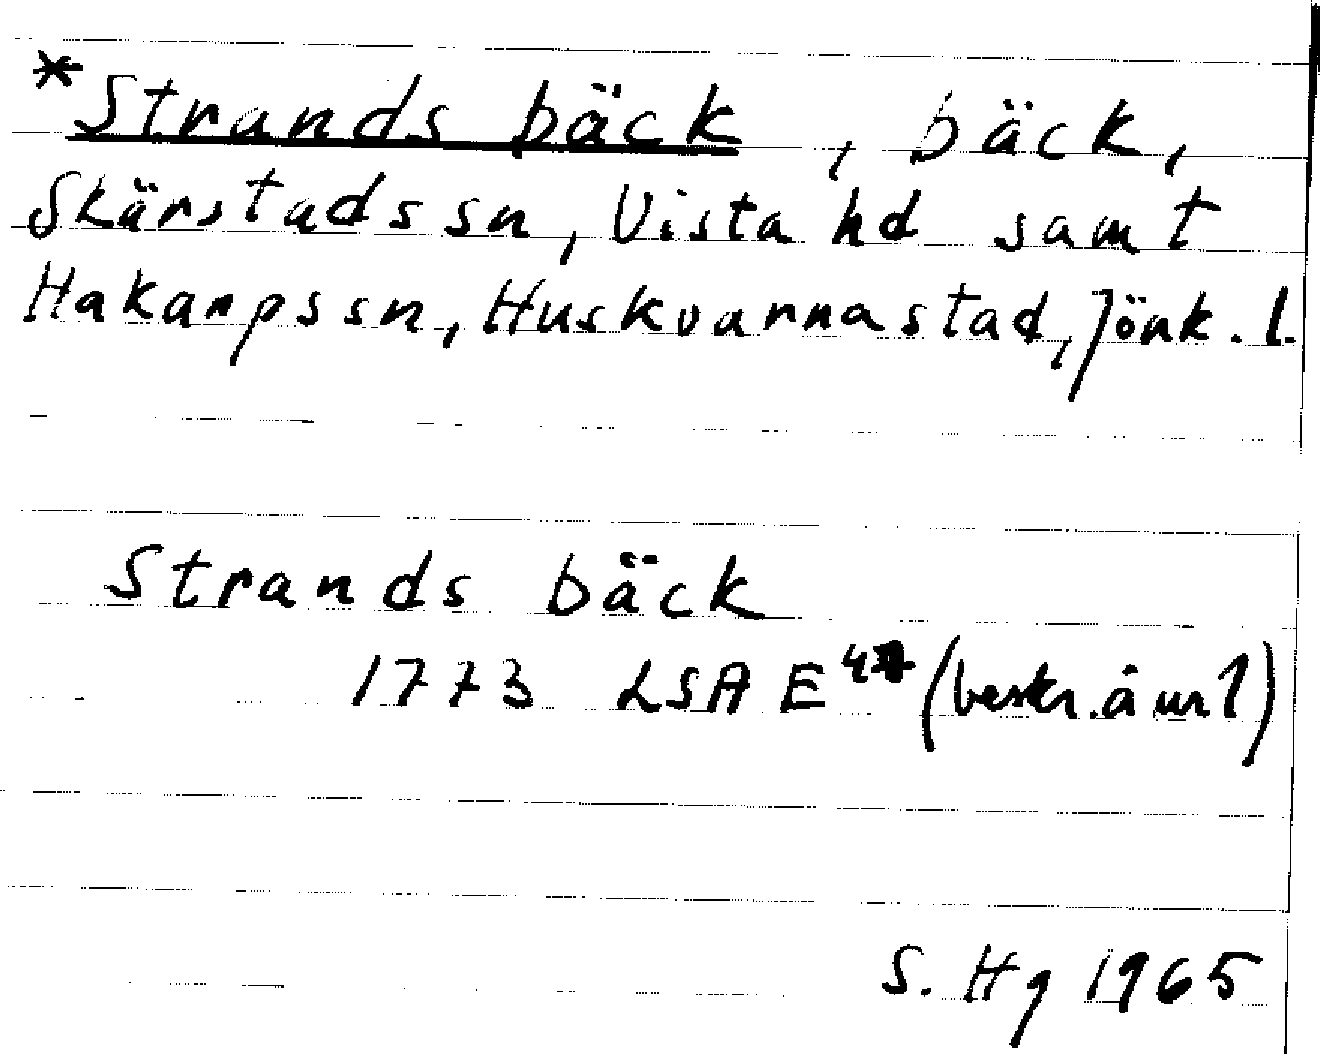 *Strands bäck, bäck,
Skärstads sn, Vista hd samt
Hakarps sn, Huskvarna stad, Jönk. l.
Strands bäck
1773 LSA E (beskr. å
S. Hg 1965